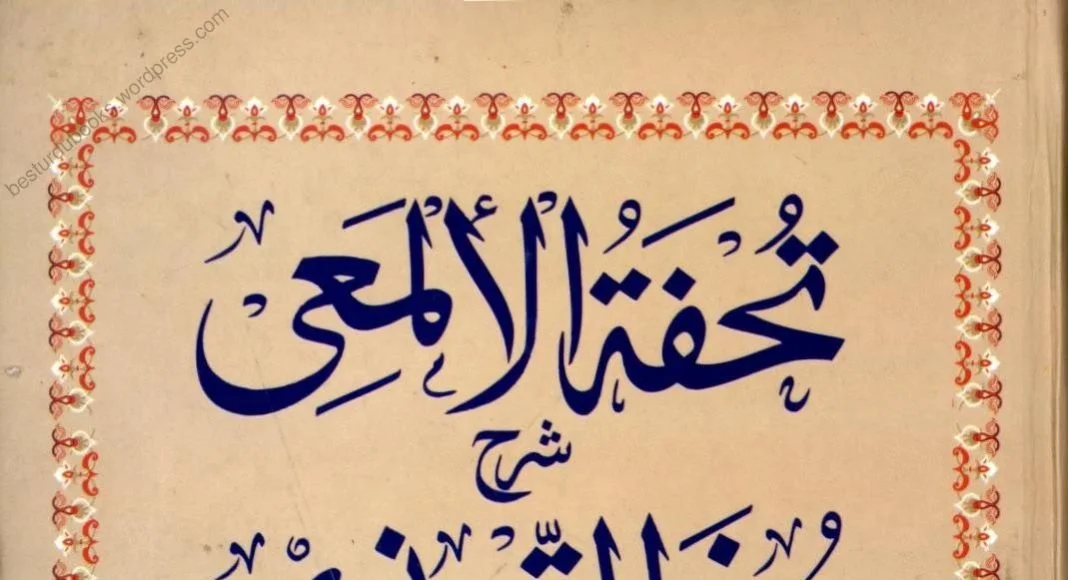 besturdubooks.wordpress.com
تُحفَةُ الأَلمَعِی
شرح